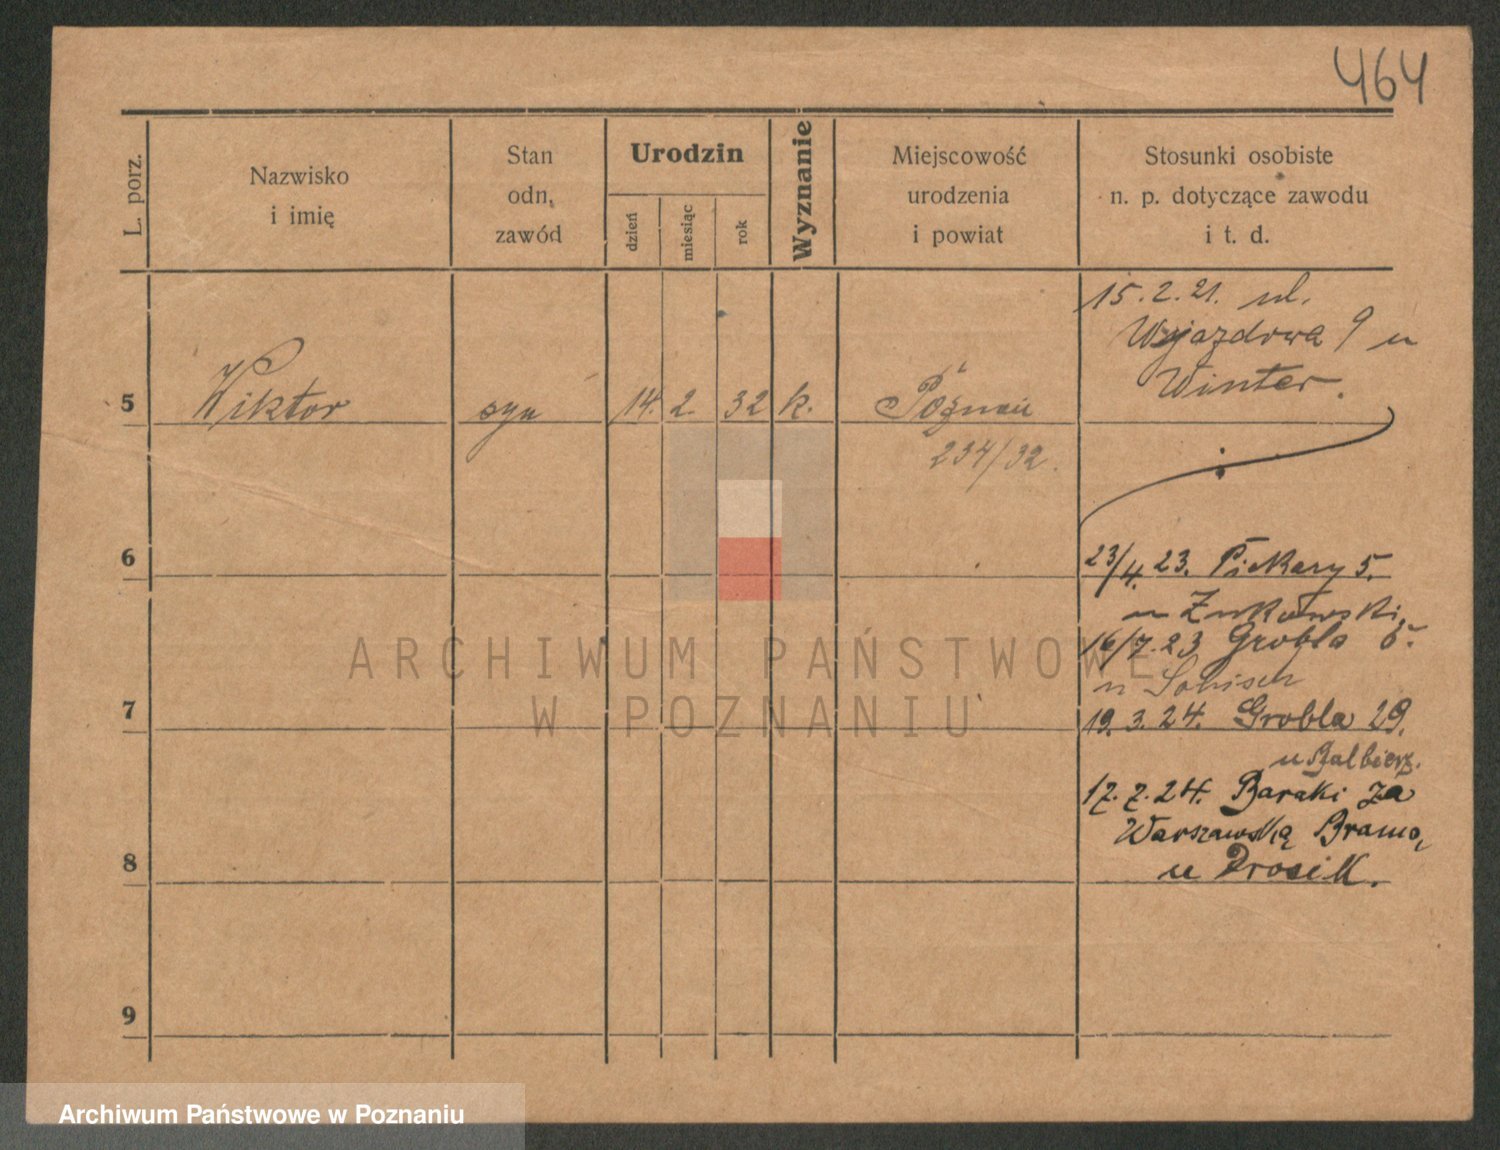 464
L. porz.
Nazwisko
i imię
Stan
odn.
zawód
Urodzin
dzień
miesiąc
rok
Wyznanie
Miejscowość
urodzenia
i powiat
Stosunki osobiste
n. p. dotyczące zawodu
i t. d.
15. 2. 21. ul.
Wyjazdowa 9 u
Winter.
5 Wiktor syn 14. 2. 32 k. Poznań
234/32.
6
23/4. 23. Piekary 5.
u Żukowski,
16/7. 23 Grobla 5.
u
7
19. 3. 24. Grobla 29.
u Balbierz.
17. 7. 24. Baraki za
Warszawską Bramą,
u Drosik.
8
9
ARCHIWUM PAŃSTWOWE
W POZNANIU
Archiwum Państwowe w Poznaniu